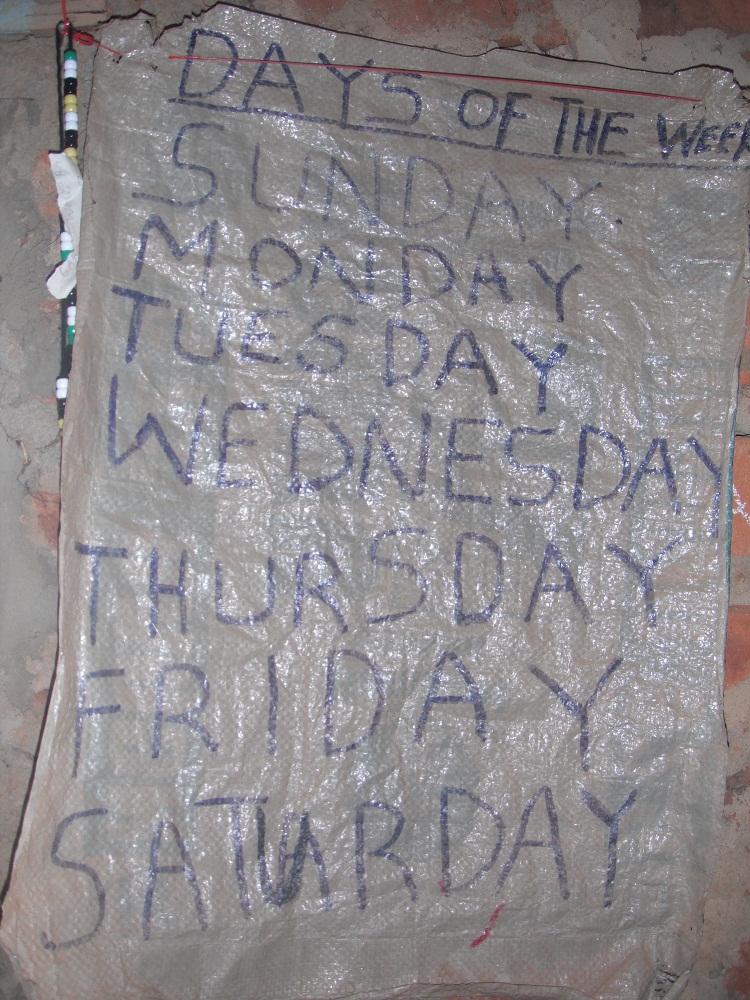 DAYS OF THE WEEK
SUNDAY.
MONDAY
TUESDAY
WEDNESDAY
THURSDAY
FRIDAY
SATURDAY